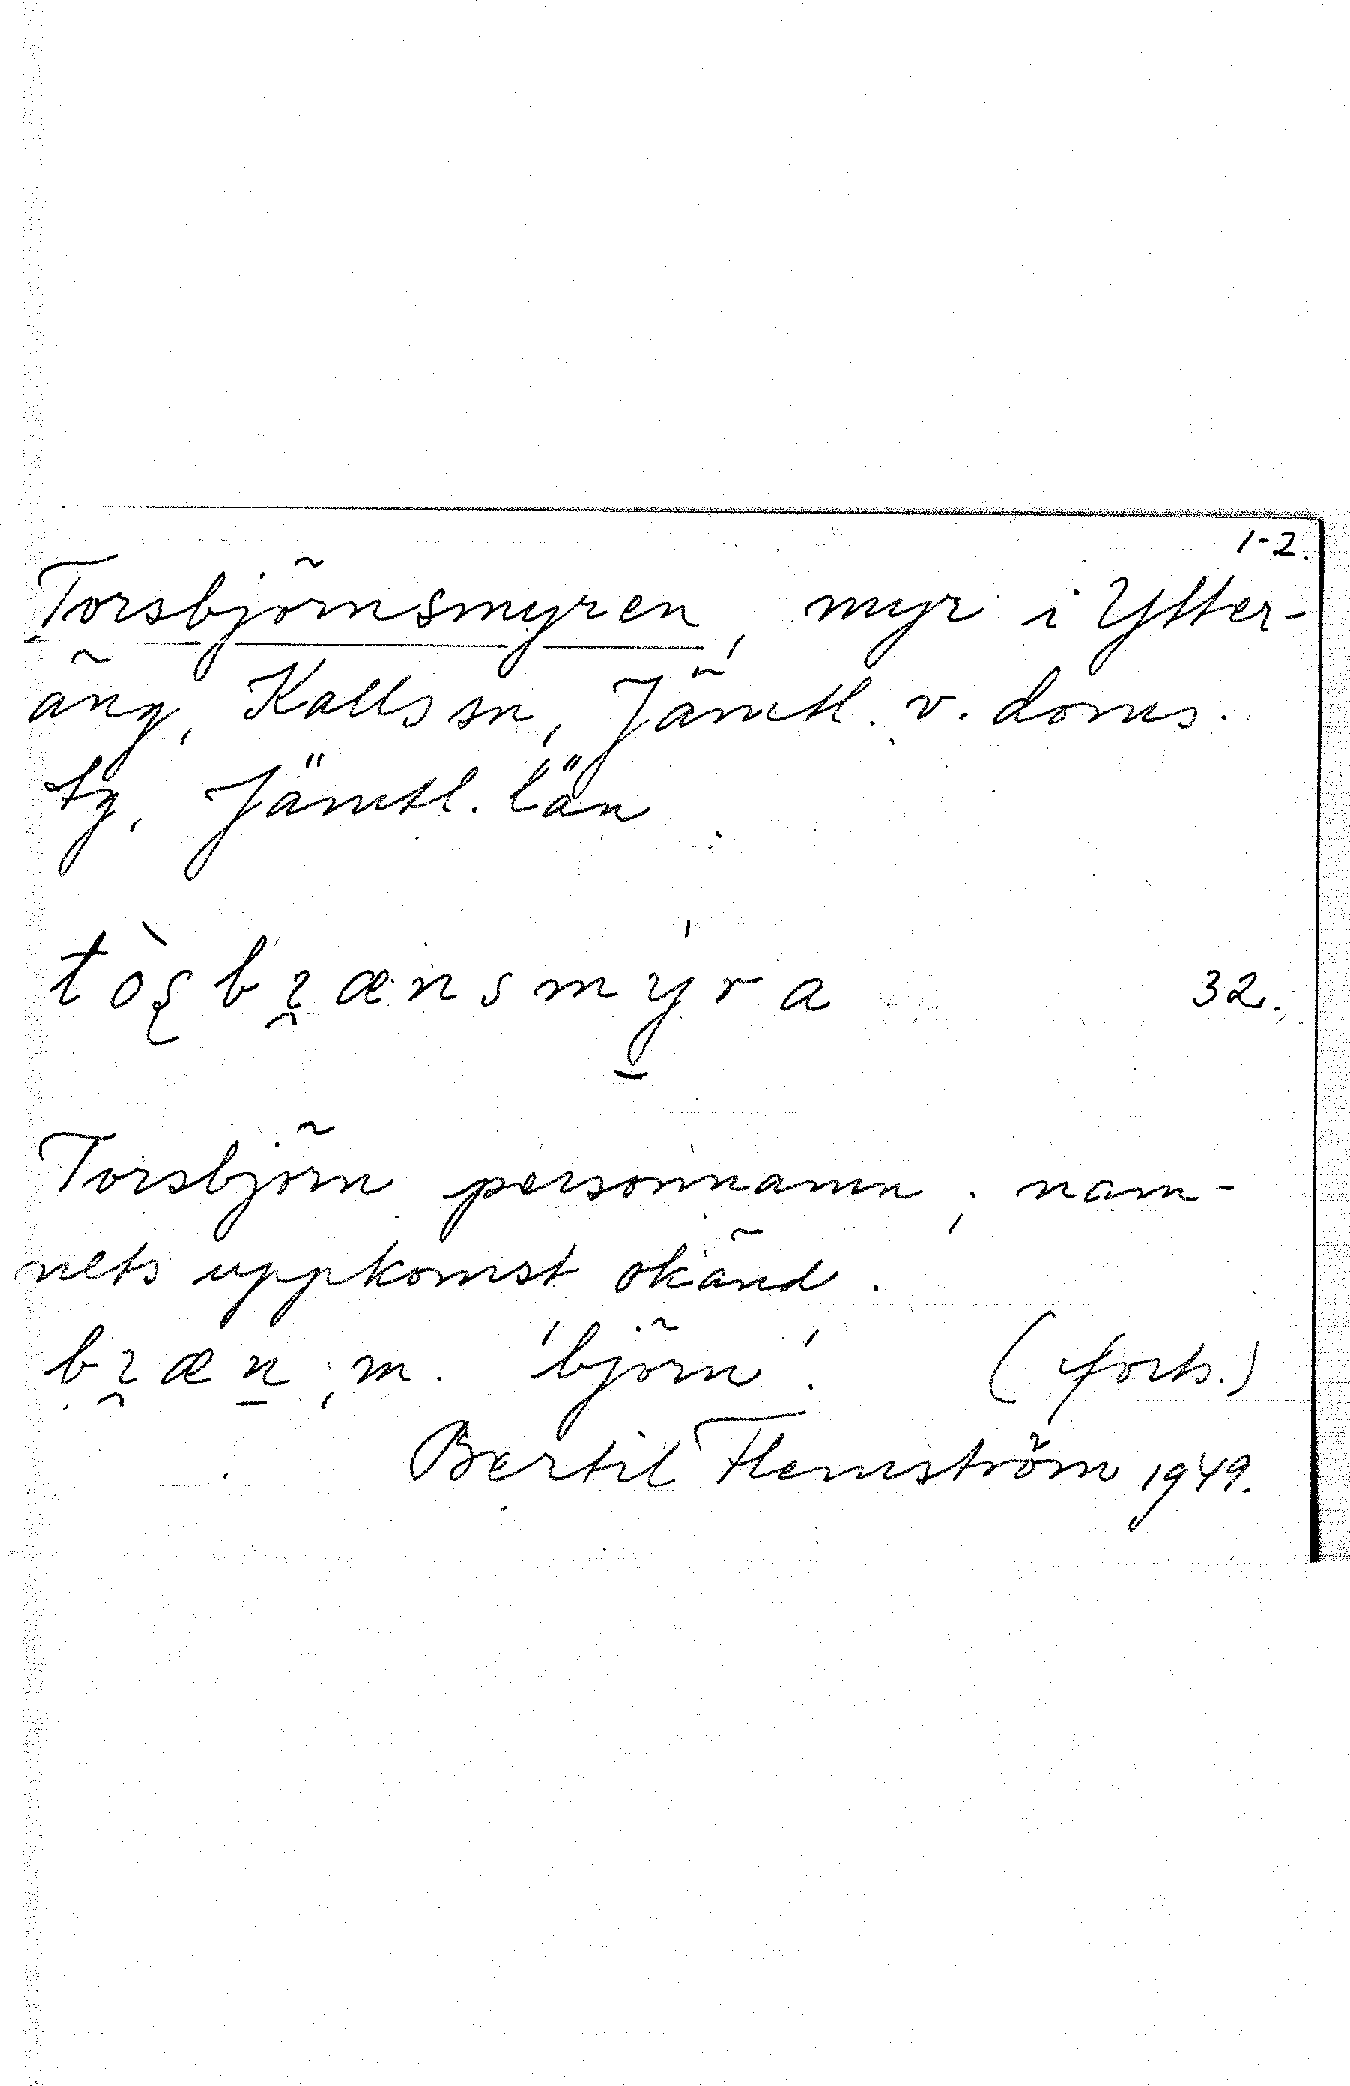 1-2.
Torsbjörnsmyren, myr i Ytter-
äng, Kalls sn, Jämtl. v. doms.
tg, Jämtl. län
32.
Torsbjörn personnamn; nam-
nets uppkomst okänd.
m. 'björn'. (forts.)
Bertil Flemström 1949.